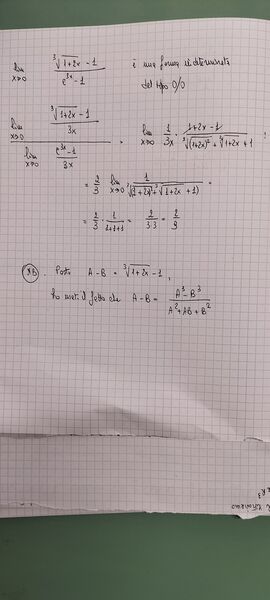 lim x→0 (∛(1+2x) - 1)/(e^3x - 1) è una forma indeterminata
del tipo 0/0
(lim x→0 (∛(1+2x) - 1)/3x)/(lim x→0 (e^3x - 1)/3x) = lim x→0 1/3x · (1+2x - 1)/(∛(1+2x)² + ∛1+2x + 1) =
= 2/3 lim x→0 1/(∛(1+2x)² + ∛(1+2x) + 1) =
= 2/3 · 1/(1+1+1) = 2/(3·3) = 2/9
NB. Posto A - B = ∛(1+2x) - 1,
ho il fatto che A - B = (A³ - B³)/(A² + AB + B²)